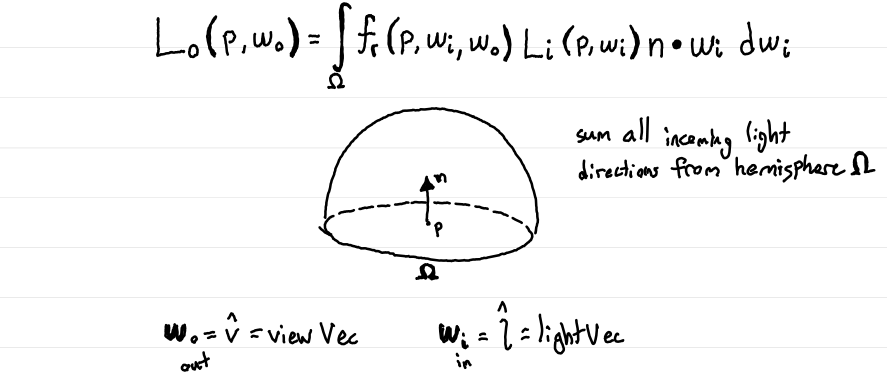 L₀(p, w₀) = ∫Ω fᵣ(p, wᵢ, w₀) Lᵢ(p, wᵢ) n • wᵢ dwᵢ
sum all incoming light
directions from hemisphere Ω
n
p
Ω
w₀ = v̂ = view Vec
out
wᵢ = l̂ = light Vec
in